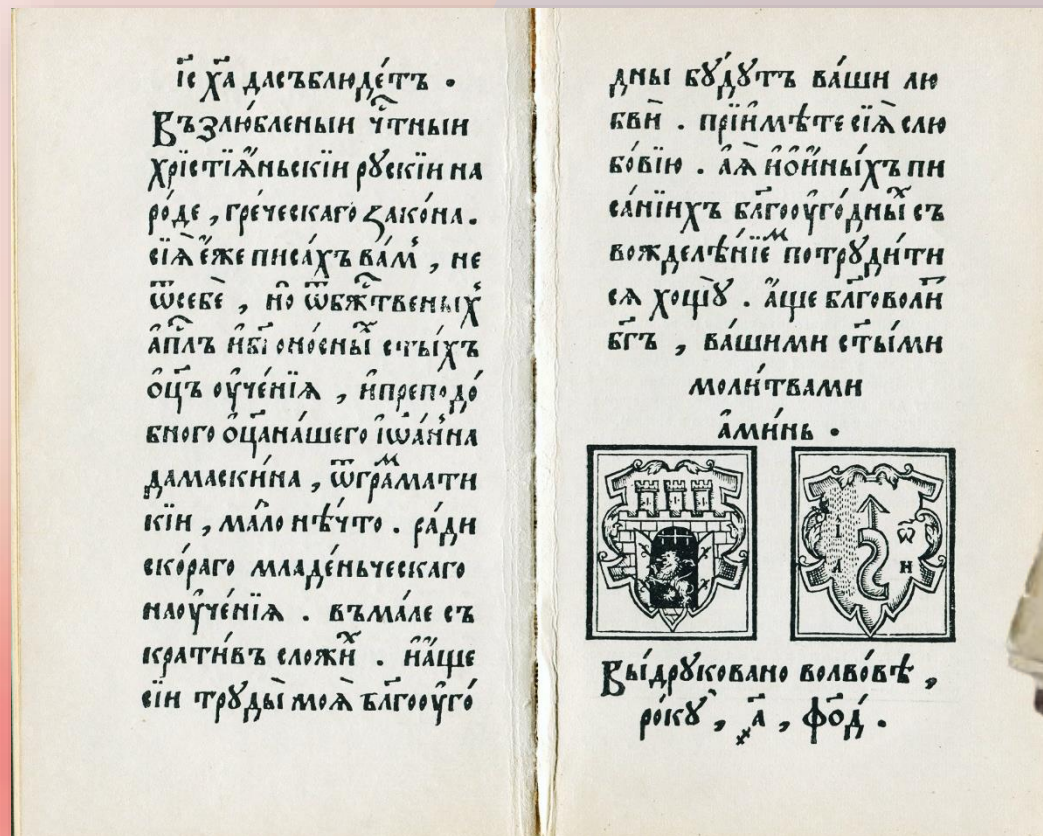 і҃с х҃а дасъблюде́тъ .
Възлю́бленыи ч҃тныи
хрїстїѧ́ньскїи рꙋскїи на
ро́де , гре́ческаго зако́на .
сїѧ̀ є́же писа́хъ ва́мъ , не
ѿсебѐ , но ѿбж҃твеныⷯ
а҆пⷭ҇лъ и҆бг҃оносныⷯ ст҃ыхъ
ѻц҃ъ ѹ҆че́нїѧ , и҆преподо́
бного ѻц҃ана́шего і҆ѡа́нна
дамаски́на , ѿгра́маⷨти
кїи , ма́ло нѣ́что . ра́ди
ско́раго младе́ньческаго
наѹче́нїѧ . въма́ле съ
крати́въ сложиⷯ . и҆а҆ще
сїи трꙋды̀ моѧ̀ бл҃гоѹго́
дны бꙋ́дꙋтъ ва́ши лю
бвѝ . прїи҆мѣ́те сїѧ̀ слю
бо́вїю . а҆ѧ҆̀ и҆ои҆ны́хъ пи
са́нїихъ бл҃гоѹго́дныⷯ съ
вожделѣ́нїеⷨ потрꙋди́ти
сѧ хощꙋ̀ . а҆́ще бл҃говоли́т
бг҃ъ , ва́шими ст҃ы́ми
моли́твами
а҆ми́нь .
І ѿ
А Н
Вы́дрꙋковано волво́вѣ ,
ро́кꙋ , ҂а҃ , фо҃д .